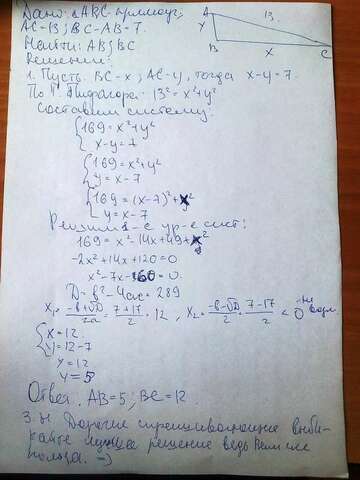 Дано: △ABC-прямоуг;
AC=13; BC-AB=7.
Найти: AB; BC
Решение:
1. Пусть BC-x; AC-y, тогда x-y=7.
По т. Пифагора: 13²=x²+y²
Составим систему:
{169=x²+y²
x-y=7
{169=x²+y²
y=x-7
{169=(x-7)²+x²
y=x-7
Решим 1-е ур-е сист:
169=x²-14x+49+x²
-2x²+14x+120=0
x²-7x-60=0
D=b²-4ac=289
x₁=(-b+√D)/2a=(7+17)/2=12, x₂=(-b-√D)/2=(7-17)/2<0
{x=12
y=12-7
x=12
y=5
Ответ: AB=5; BC=12
A
13
x
B
X
C
З.Ы Дорогие спрашивающие выби-
райте лучшее решение ведь Вам же